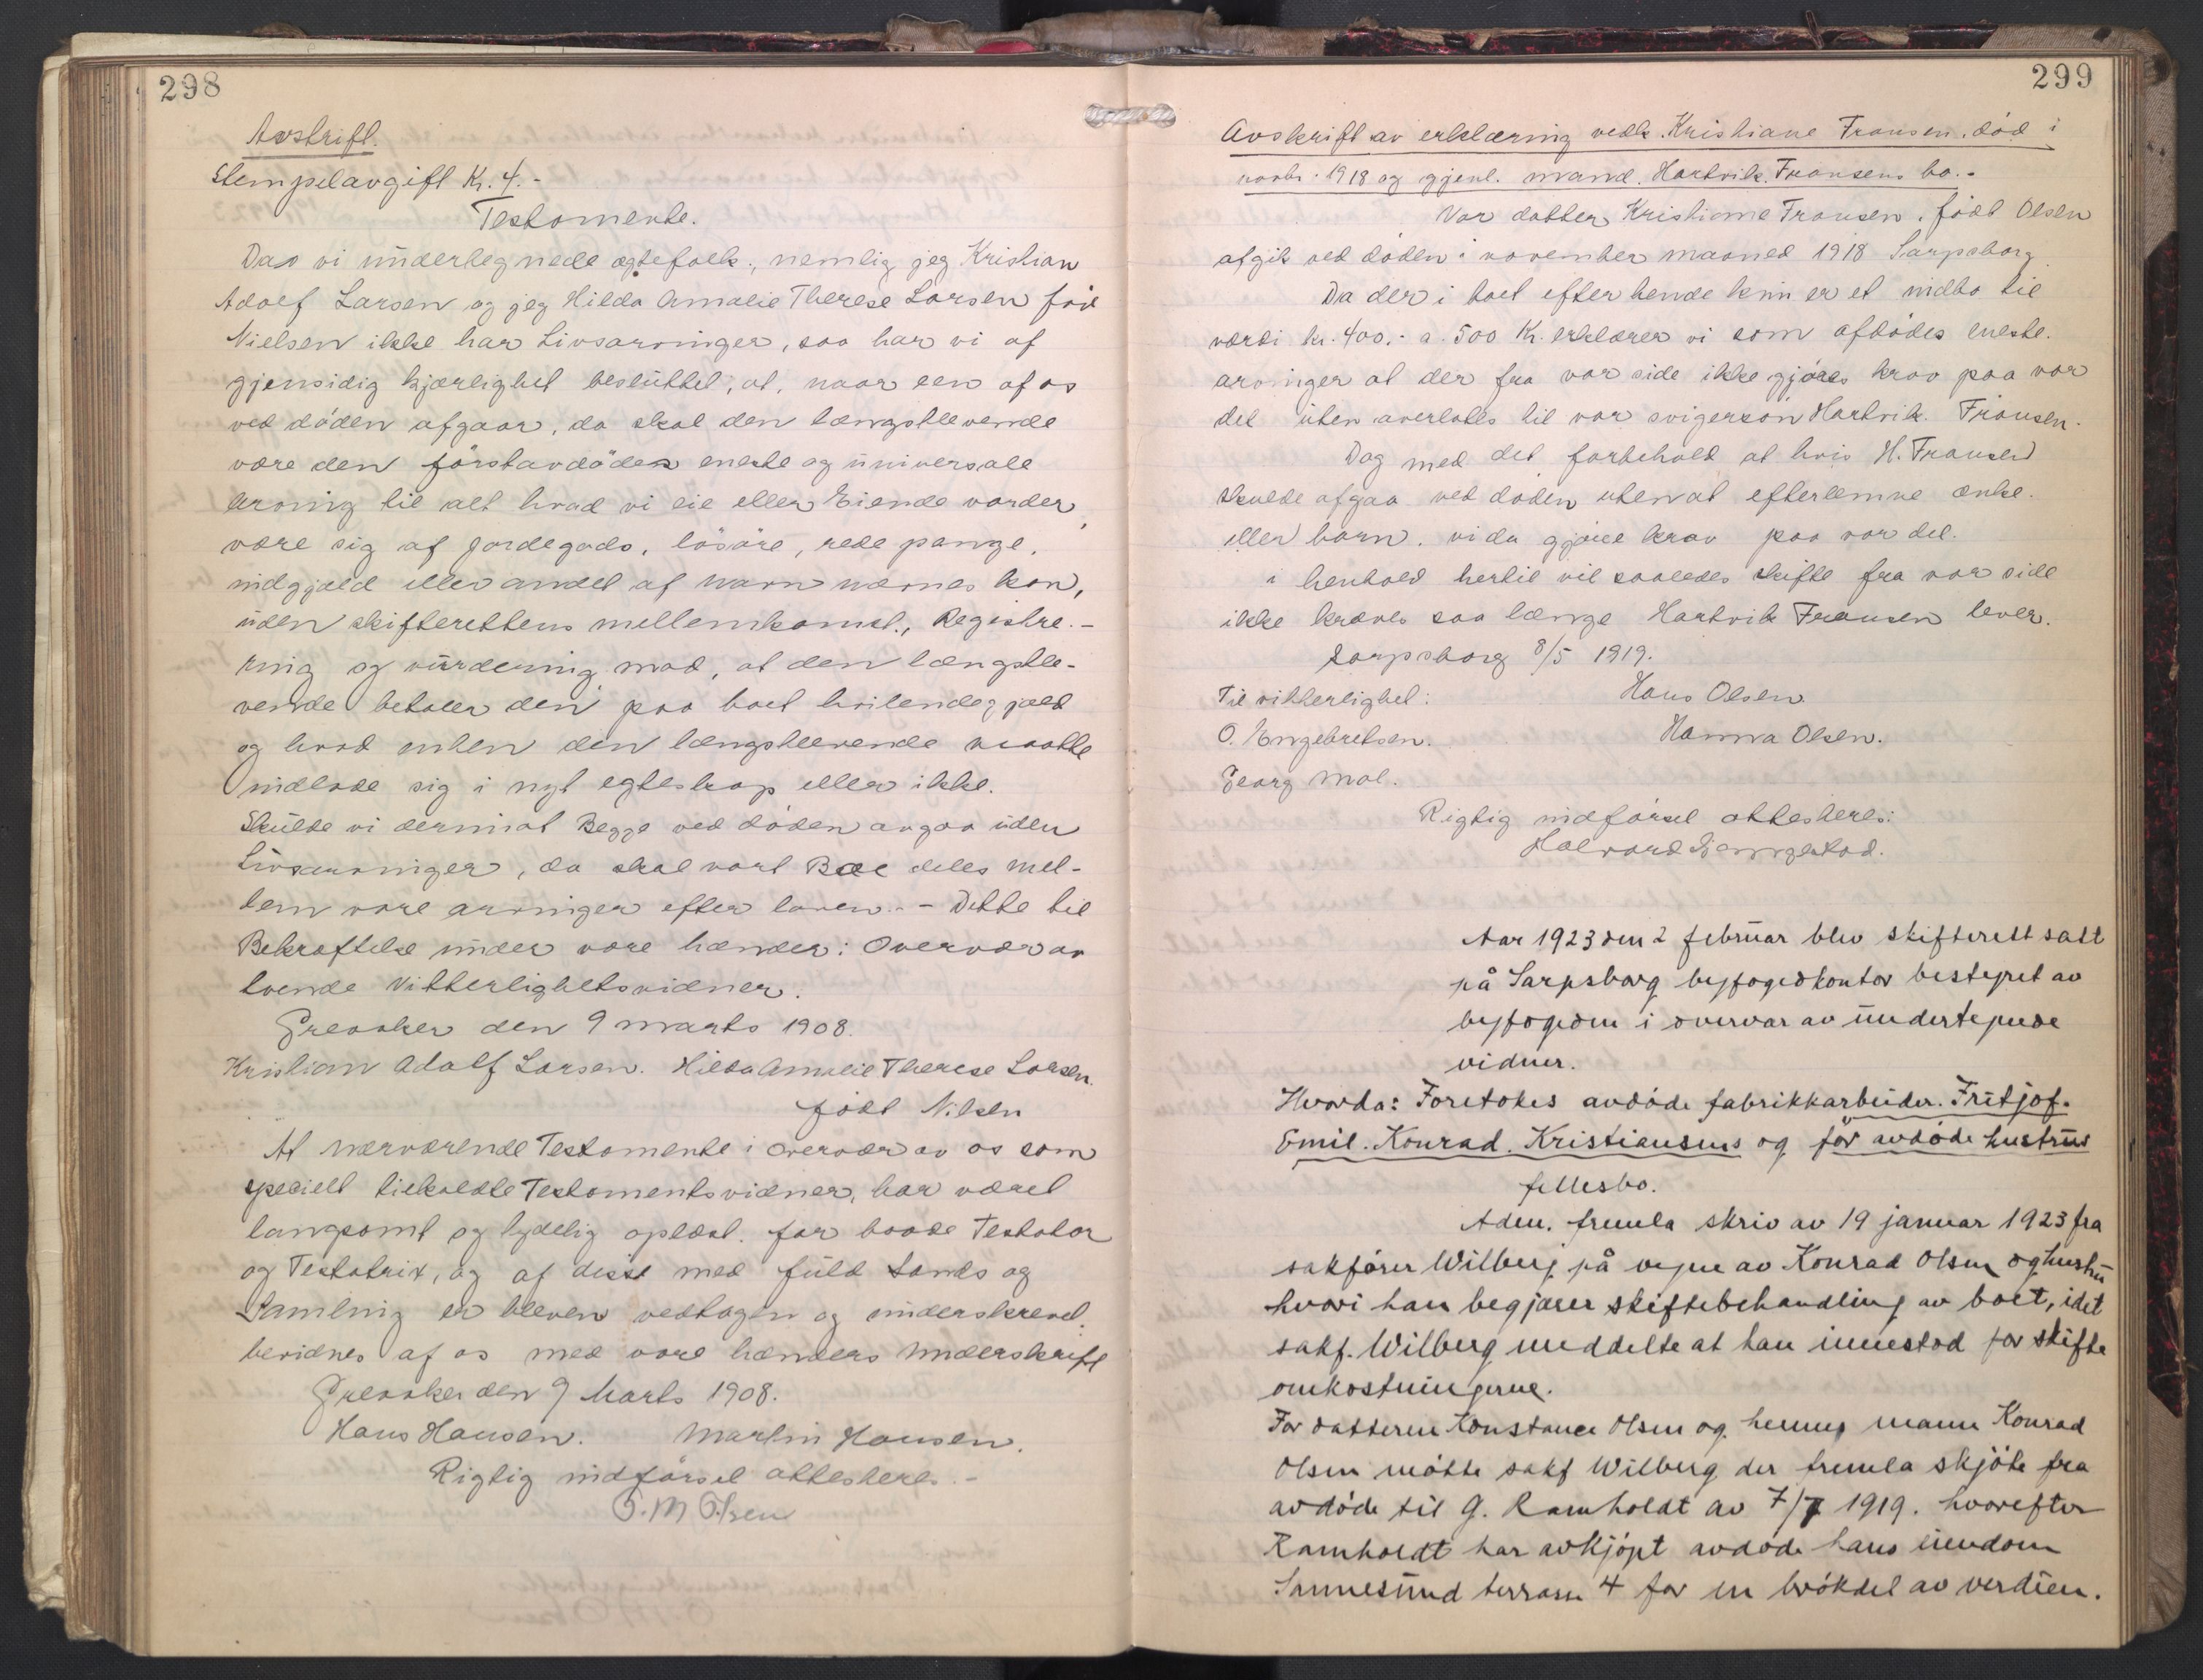 298
Avskrift.
Stempelavgift Kr. 4.-
Testamente.
Da vi underteg nede egtefolk, nemlig jeg Kristian
Adolf Larsen og jeg Hilda Amalie Therese Larsen föd
Nielsen ikke har Livsarvinger, saa har vi af
gjensidig kjærlighet besluttet, at, naar een af os
ved döden afgaar, da skal den længstlevende
være den förstavdödes eneste og universale
Arving til alt hvad vi eie eller Eiende vorder,
være sig af Jordegods, lösöre, rede penge,
indgjæld eller andet af navn nævnes kan,
uden skifterettens mellemkomst, Registre.-
ring og vurdering mod, at den længstle-
vende betaler den paa boet hvilende gjæld
og hvad enten den længstlevende maatte
indlade sig i nyt egteskap eller ikke.
Skulde vi derimot Begge ved döden avgaa uden
Livsarvinger, da skal vort Boe deles mel-
lem vore arvinger efter loven. - Dette til
Bekræftelse under vore hænder: Overvær av
tvende Vitterlighetsvidner.
Greaaker den 9 marts 1908.
Kristian Adolf Larsen. Hilda Amalie Therese Larsen.
födt Nilsen
At nærværende Testamente i overvær av os som
specielt tilkaldte Testamentsvidner, har været
langsomt og tydelig oplæst. for baade Testator
og Testatrix, og af disse med fuld Sands og
Samling er bleven vedtagen og underskrevet.
bevidnes af os med vore hænders Underskrift
Greaaker den 9 Marts 1908.
Hans Hansen. Martin Hansen.
Rigtig indförsel attesteres.-
O. M Olsen
299
Avskrift av erklæring vedk. Kristiane Fransen. död i
novbr. 1918 og gjenl. mand. Hartvik. Fransens bo.-
Vor datter Kristiane Fransen. födt Olsen
afgik ved döden i november maaned 1918 Sarpsborg.
Da der i boet efter hende kun er et indbo til
værdi kr. 400.- a. 500 Kr. erklærer vi som afdödes eneste.
arvinger at der fra vor side ikke gjöres krav paa vor
del uten averlates til vor svigersön Hartvik. Fransen.
Dog med det forbehold at hvis H. Fransen
skulde afgaa ved döden uten at efterlemne enke.
eller barn. vi da gjöre krav paa vor del.
i henhold hertil vil saaledes skifte fra vor side
ikke kræves saa længe Hartvik Fransen lever.
Sarpsborg 8/5 1919.
Til vitterlighet: Hans Olsen.
O. Engebretsen. Hanna Olsen.
Georg Moe.
Rigtig indförsel attesteres:
Halvard
Aar 1923 den 2 februar blev skifterett satt
på Sarpsborg byfogedkontor bestyret av
byfogden i overvær av undertegnede
vidner.
Hvorda: Foretokes avdöde fabrikkarbeider. Fritjof.
Emil. Konrad. Kristiansens og för avdöde hustrus
fellesbo.
Adm. fremla skriv av 19 januar 1923 fra
sakförer Wilberg på vegne av Konrad Olsen og hustru
hvori han begjærer skiftebehandling av boet, idet
sakf. Wilberg meddelte at han innestod for skifte
omkostningerne.
For datteren Konstance Olsen og hennes mann Konrad
Olsen mötte sakf Wilberg der fremla skjöte fra
avdöde til G. Ramholdt av 7/7 1919. hvorefter
Ramholdt har avkjöpt avdöde hans eiendom
Sannesund terrasse 4 for en brökdel av verdien.